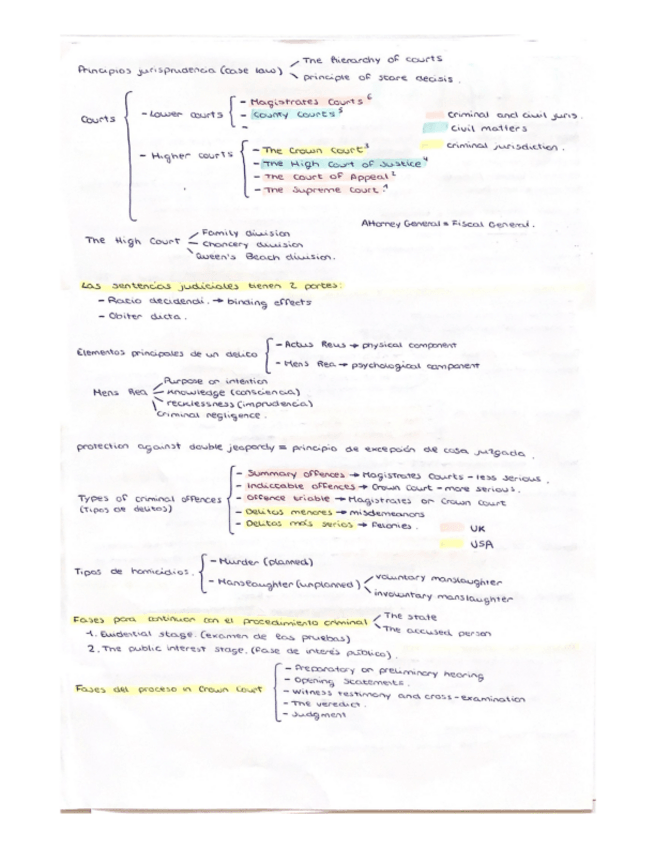 The hierarchy of courts
Principios jurisprudencia (case law)
principle of stare decisis.
- Magistrates Courts 6
Courts - Lower courts - County Courts 5
-
Criminal and civil juris.
Civil matters
criminal jurisdiction.
- The Crown Court 3
- Higher courts - The High Court of Justice 4
- The Court of Appeal 2
- The Supreme Court 1
Attorney General = Fiscal General.
Family division
The High Court - Chancery division
Queen's Beach division.
Las sentencias judiciales tienen 2 partes:
- Racio decidendi. → binding effects
- Obiter dicta.
- Actus Reus → physical component
Elementos principales de un delito
- Mens Rea → psychological component
Purpose or intention
Mens Rea - Knowledge (consciencia)
recklessness (imprudencia)
Criminal negligence.
protection against double jeopardy = principio de excepción de cosa juzgada.
- Summary offences → Magistrates Courts - less serious.
- Indictable offences → Crown Court - more serious.
Types of criminal offences - Offence triable → Magistrates or Crown Court
(Tipos de delitos) - Delitos menores → misdemeanors
- Delitos más serios → Felonies.
UK
USA
- Murder (planned)
Tipos de homicidios.
- Manslaughter (unplanned) voluntary manslaughter
involuntary manslaughter
Fases para continuar con el procedimiento criminal The state
The accused person
1. Evidential stage. (examen de las pruebas)
2. The public interest stage. (Fase de interés público).
- Preparatory or preliminary hearing
- Opening statements.
Fases del proceso in Crown Court - Witness testimony and cross-examination
- The veredict.
- Judgment